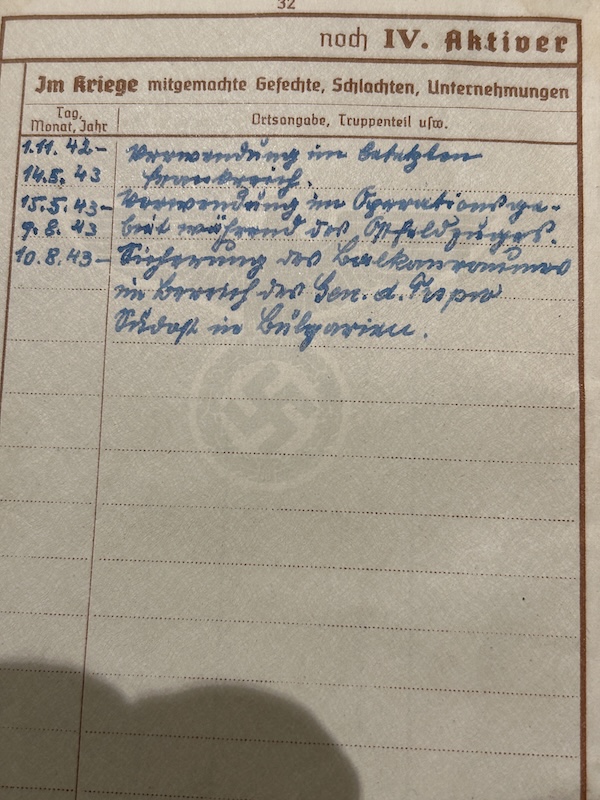 32
noch IV. Aktiver
Im Kriege mitgemachte Gefechte, Schlachten, Unternehmungen
Tag, Monat, Jahr
Ortsangabe, Truppenteil usw.
1.11.42– Verwendung im besetzten
14.5.43 Frankreich.
15.5.43– Verwendung im Operationsge-
9.8.43 biet während des Ostfeldzuges.
10.8.43– Sicherung des Balkanraumes
im Bereich des Gen. d.
Südost in Bulgarien.